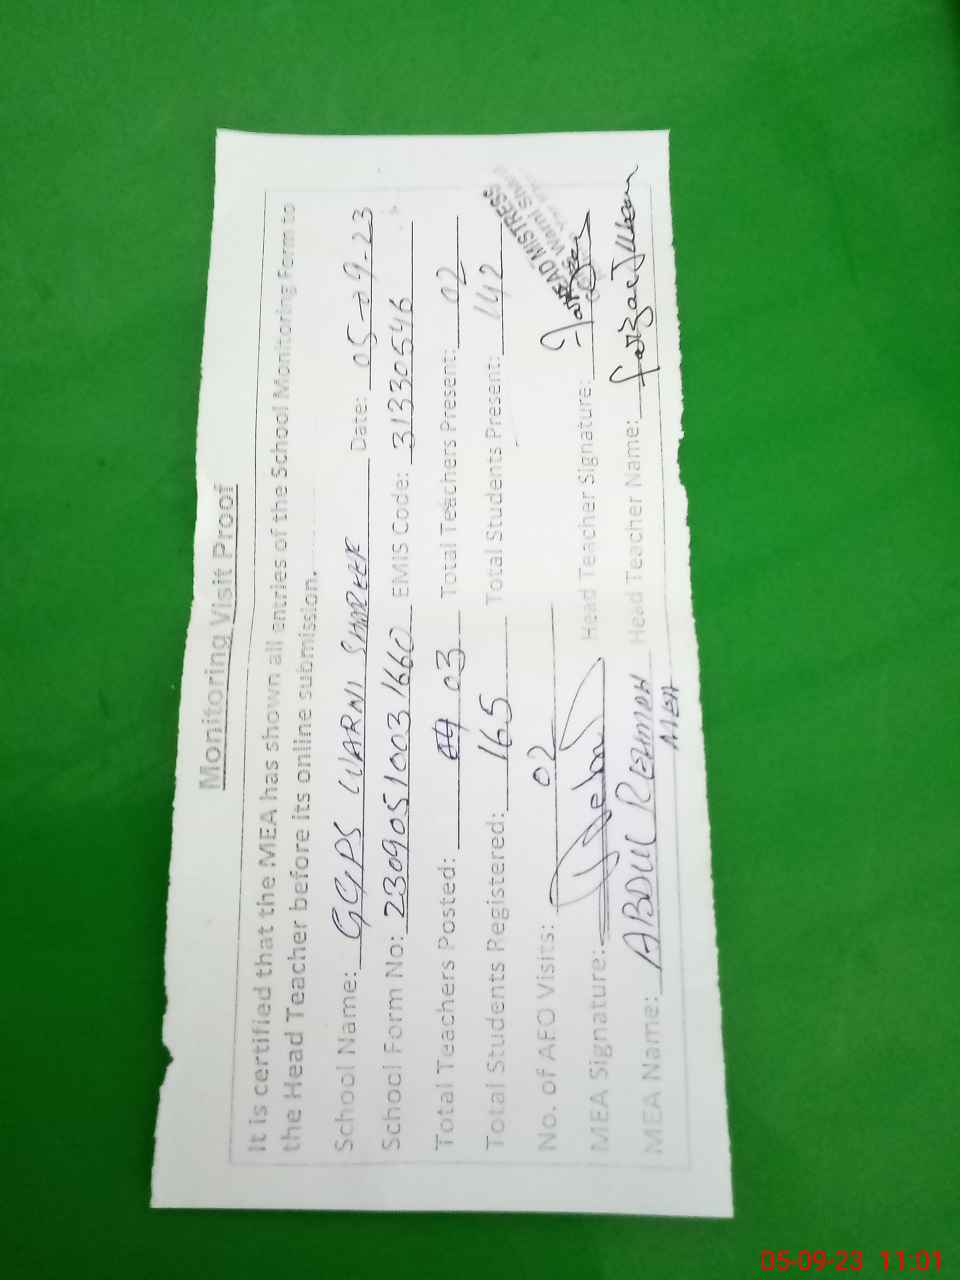 Monitoring Visit Proof
It is certified that the MEA has shown all entries of the School Monitoring Form to
the Head Teacher before its online submission.
School Name: GGPS WARNI SHAREEF Date: 05-09-23
School Form No: 23090510031660 EMIS Code: 31330546
Total Teachers Posted: 03 Total Teachers Present: 02
Total Students Registered: 165 Total Students Present: 142
No. of AEO Visits: 02
HEAD MISTRESS
MEA Signature: Head Teacher Signature:
MEA Name: ABDUL REHMAN Head Teacher Name:
MEA
05-09-23 11:01